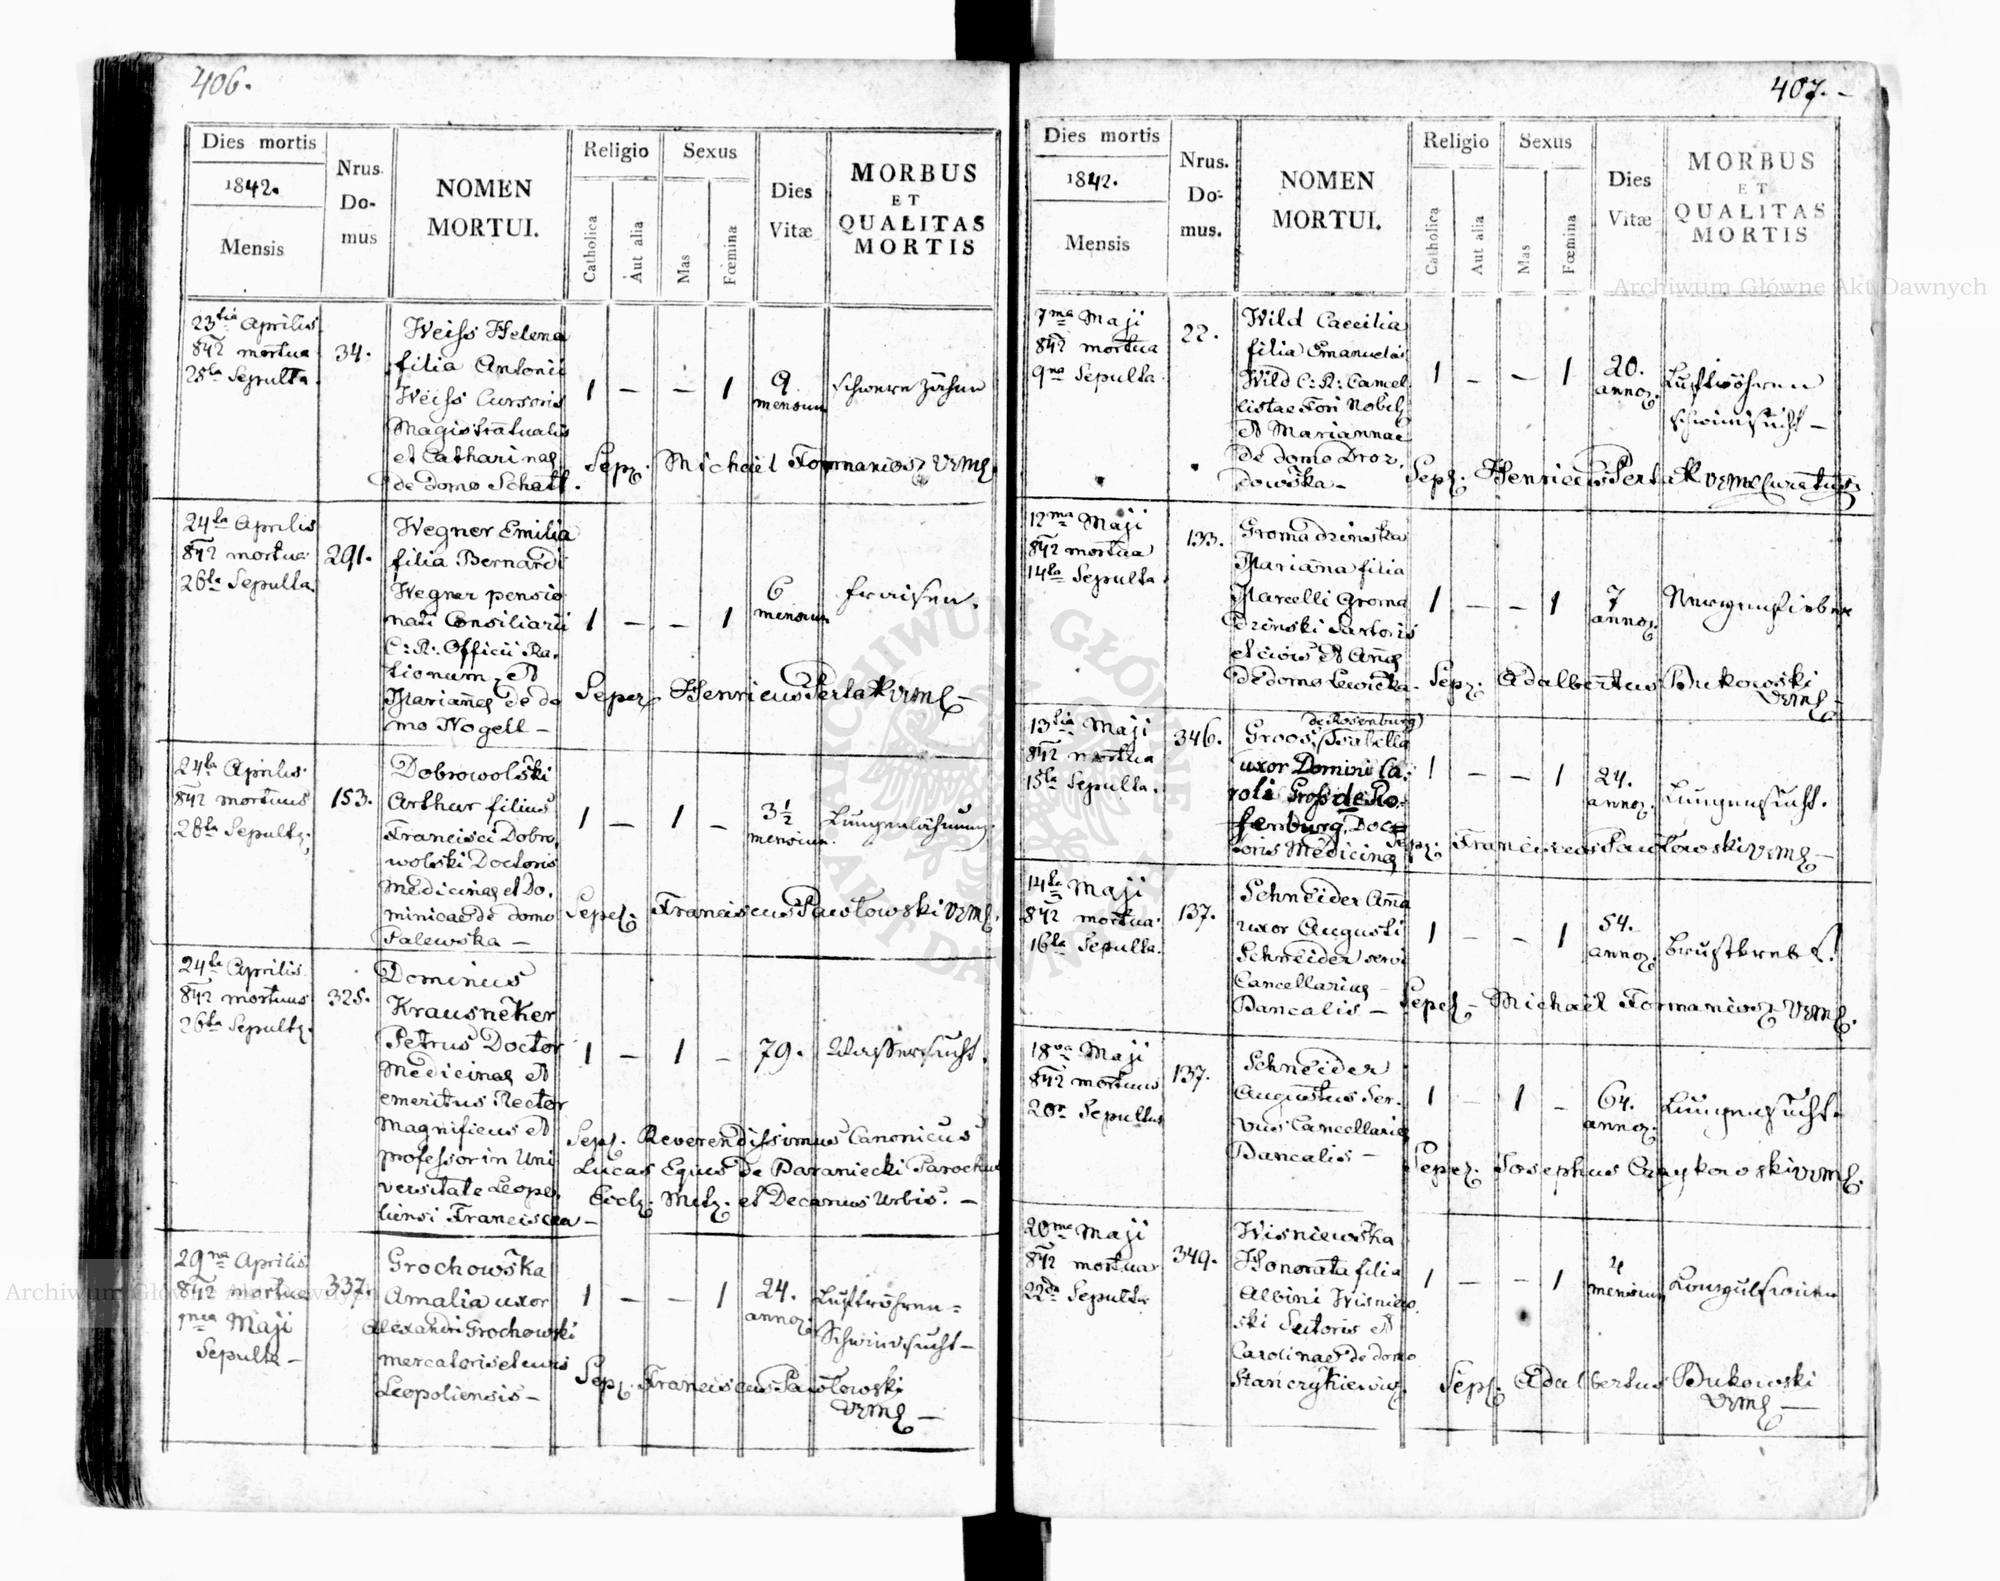 406.
Dies mortis
1842.
Mensis
Nrus
Do-
mus
NOMEN
MORTUI.
Religio
Catholica
Aut alia
Sexus
Mas
Fœmina
Dies
Vitæ
MORBUS
ET
QUALITAS
MORTIS
23tia Aprilis
842 mortua
25ta Sepulta
34.
Weiss Helena
filia Antonii
Weiss Cursoris
Magistratualis
et Catharinae
de domo Schatt.
1 — — 1
9
mensium
schwere Zähne
Sep. Michael Formaniosz
24ta Aprilis
842 mortua
26ta Sepulta
291.
Wegner Emilia
filia Bernardi
Wegner pensio
nati Consiliarii
C: R: Officii Ra-
tionum, et
Mariannae de do
mo Nogell —
1 — — 1
6
mensium
Fraisen.
Henricus Pertak
24ta Aprilis
842 mortuus
26ta Sepult.
153.
Dobrowolski
Arthur filius
Francisci Dobro
wolski Doctoris
Medicinae et Do-
minicae de domo
Palewska —
1 — 1 —
3½
mensium
Lungenlähmung.
Franciscus Pawłowski
24ta Aprilis
842 mortuus
26ta Sepult.
325.
Dominus
Krausneker
Petrus Doctor
Medicinae et
emeritus Rector
Magnificus et
professor in Uni
versitate Leopo
liensi Franciscea —
1 — 1 —
79.
Wassersucht.
Sep. Reverendissimus Canonicus
Lucas Eques de Baraniecki Parochus
Eccl. Met. et Decanus Urbis. —
29na Aprilis
842 mortua
1ma Maji
Sepulta —
337.
Grochowska
Amalia uxor
Alexandri Grochowski
mercatoris et civis
Leopoliensis —
1 — — 1
24.
annor.
Luftröhren=
Schwindsucht —
Sep. Franciscus Pawłowski
407. —
Dies mortis
1842.
Mensis
Nrus.
Do-
mus.
NOMEN
MORTUI.
Religio
Catholica
Aut alia
Sexus
Mas
Fœmina
Dies
Vitæ
MORBUS
ET
QUALITAS
MORTIS
7ma Maji
842 mortua
9na Sepulta
22.
Wild Caecilia
filia Emanuelis
Wild C: R: Cancel
listae Fori Nobil.
et Mariannae
de domo Droz-
dowska —
1 — — 1
20.
annor.
Luftröhren
schwindsucht —
Sep. Henricus Pertak Curatus
12ma Maji
842 mortua
14ta Sepulta
133.
Gromadzinska
Marianna filia
Marcelli Groma
dzinski Sartoris
et civis et Annae
de domo Lewicka
1 — — 1
7
annor.
Nervenfieber
Sep. Adalbertus Bukowski
13tia Maji
842 mortua
15ta Sepulta.
346.
de Rosenburg
Groos, Isabella
uxor Domini Ca-
roli Gross de Ro-
senburg, Doc
toris Medicinae
1 — — 1
24.
annor.
Lungensucht.
Sep. Franciscus Pawłowski
14ta Maji
842 mortua
16ta Sepulta.
137.
Schneider Anna
uxor Augusti
Schneider servi
Cancellariae —
Bancalis —
1 — — 1
54.
annor.
Brustkrebs.
Michael Formaniosz
18va Maji
842 mortuus
20a Sepultus
137.
Schneider
Augustus Ser-
vus Cancellariae
Bancalis —
1 — 1 —
64.
annor.
Lungensucht.
Josephus Czaykowski
20ma Maji
842 mortua
22da Sepulta
349.
Wisniewska
Honorata filia
Albini Wisniew
ski Sutoris et
Carolinae de domo
Stanczykiewicz.
1 — — 1
4
mensium
Sep. Adalbertus Bukowski
Archiwum Główne Akt Dawnych
Archiwum Główne Akt Dawnych
ARCHIWUM GŁÓWNE · AKT DAWNYCH ·